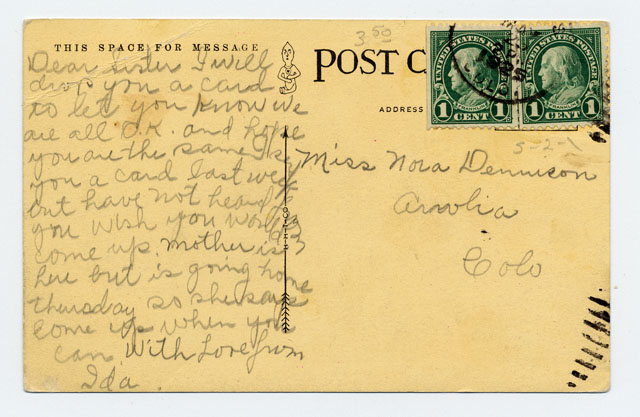 THIS SPACE FOR MESSAGE
3.50
POST C
ADDRESS
UNITED STATES POSTAGE
FRANKLIN
1 CENT 1
UNITED STATES POSTAGE
FRANKLIN
1 CENT 1
5-2-1
Dear Sister I will
drop you a card
to let you know we
are all O.K. and hope
you are the same I
you a card last week
but have not heard
you Wish you would
come up. mother is
here but is going home
thursday so she says
Come up when you
can With Love from
Ida.
Miss Nora Dennison
Colo